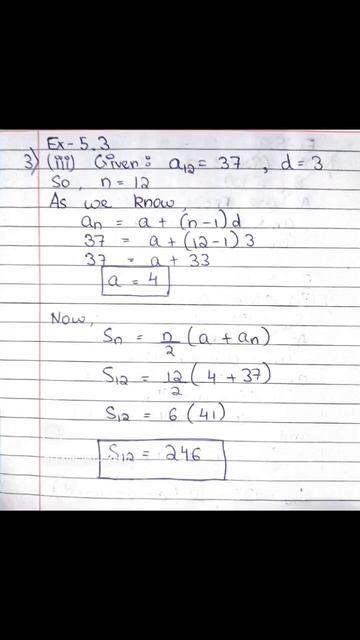 Ex-5.3
3) (iii) Given: a₁₂ = 37 , d = 3
So, n = 12
As we know,
aₙ = a + (n-1)d
37 = a + (12-1)3
37 = a + 33
a = 4
Now,
Sₙ = n/2 (a + aₙ)
S₁₂ = 12/2 (4 + 37)
S₁₂ = 6 (41)
S₁₂ = 246